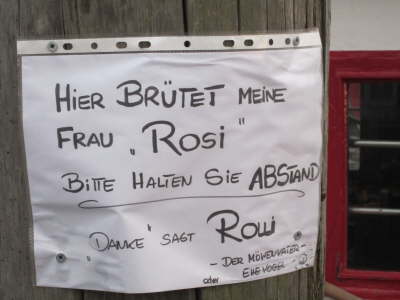 HIER BRÜTET MEINE
FRAU „ROSI"
BITTE HALTEN SIE ABSTAND
„DANKE" SAGT ROLLI
- DER MÖWENVATER -
EHEVOGEL